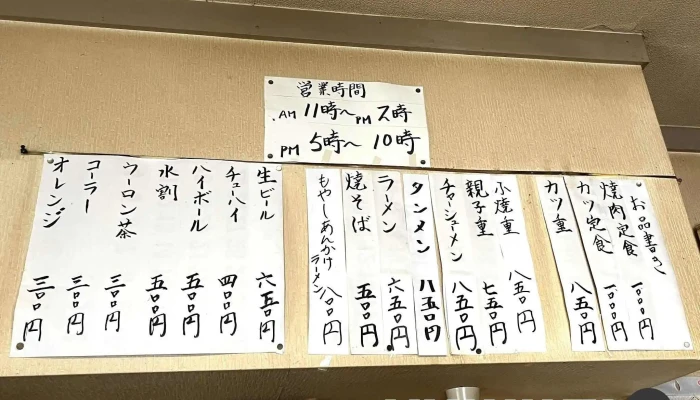 営業時間
AM 11時〜PM 2時
PM 5時〜10時
お品書き
焼肉定食 一〇〇〇円
カツ定食 一〇〇〇円
カツ重 八五〇円
小焼重 八五〇円
親子重 七五〇円
チャーシューメン 八五〇円
タンメン 八五〇円
ラーメン 六五〇円
焼そば 五〇〇円
もやしあんかけラーメン 八〇〇円
生ビール 六五〇円
チューハイ 四〇〇円
ハイボール 五〇〇円
水割 五〇〇円
ウーロン茶 三〇〇円
コーラー 三〇〇円
オレンジ 三〇〇円